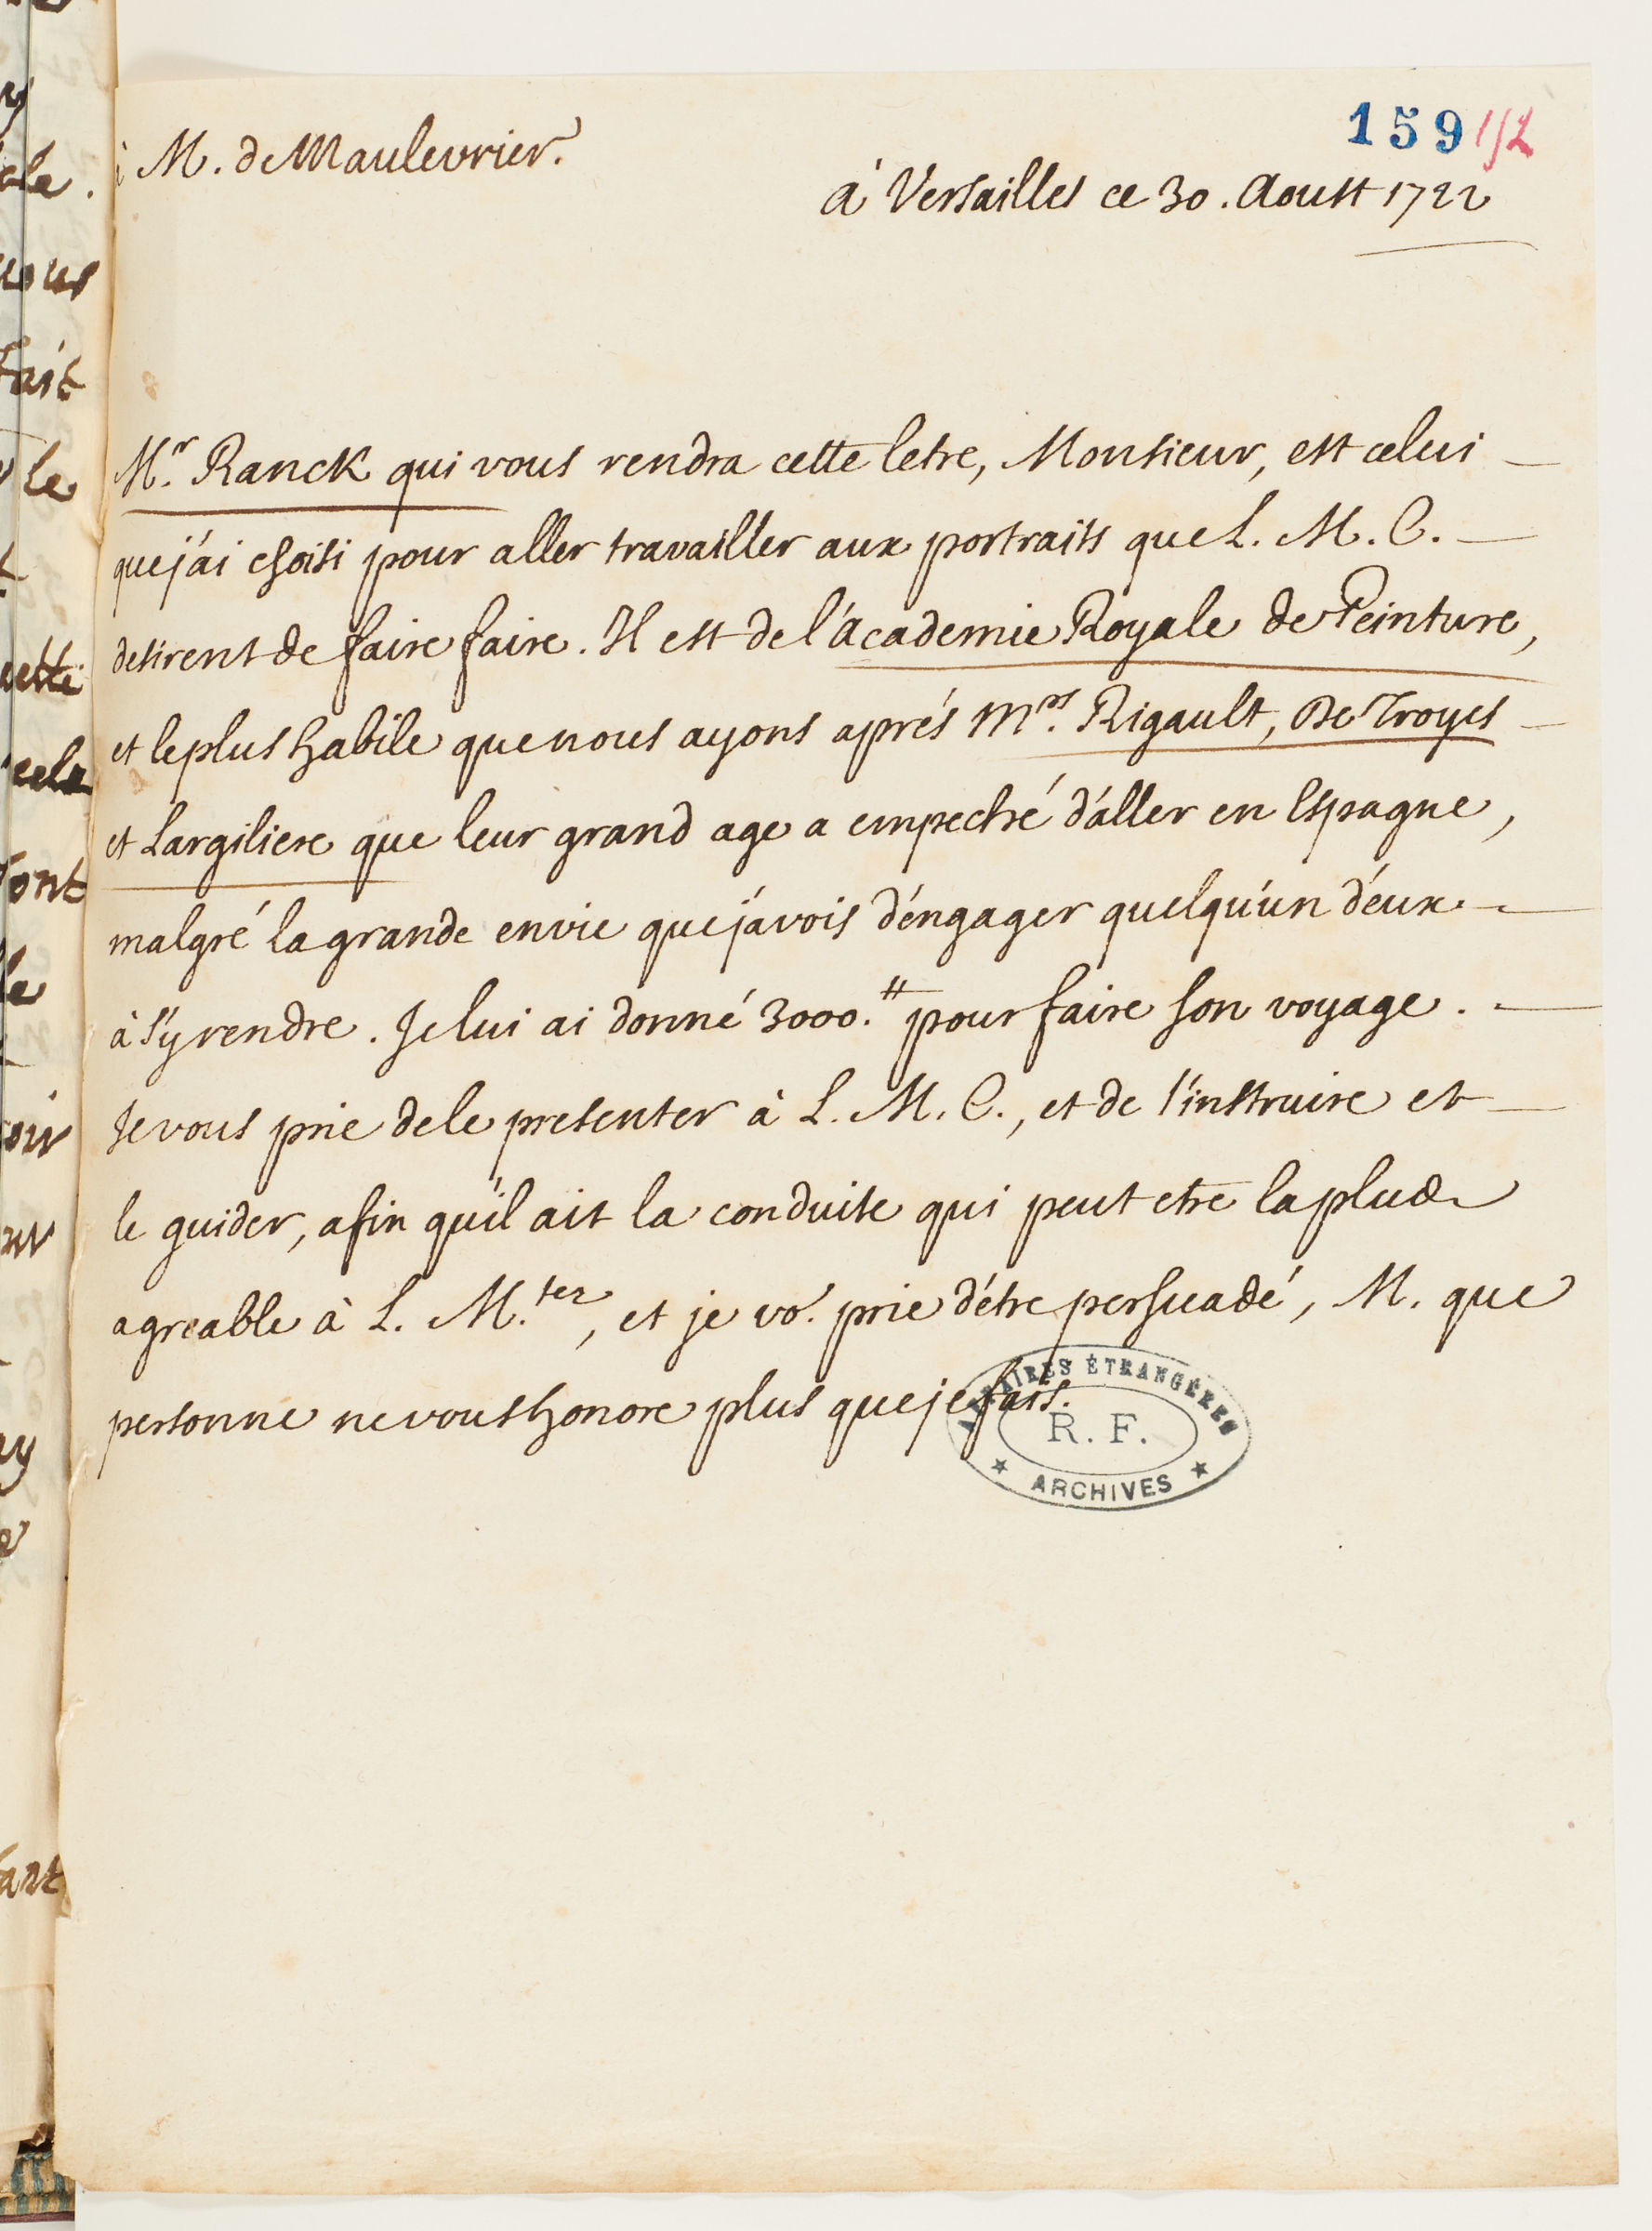 159 1/2
à M. de Maulevrier.
à Versailles ce 30. Aoust 1722
M.r Ranck qui vous rendra cette letre, Monsieur, est celui
que j'ai choisi pour aller travailler aux portraits que L. M. C.
desirent de faire faire. Il est de l'academie Royale de Peinture,
et le plus habile que nous ayons aprés M.rs Rigault, De Troyes
et Largiliere que leur grand age a empeché d'aller en Espagne,
malgré la grande envie que j'avois d'engager quelqu'un d'eux
à s'y rendre. Je lui ai donné 3000.ᵗᵗ pour faire son voyage.
Je vous prie de le presenter à L. M. C., et de l'instruire et
le guider, afin qu'il ait la conduite qui peut etre la plus
agreable à L. M.tez, et je vo. prie d'étre persuadé, M. que
personne ne vous honore plus que je fais.
AFFAIRES ÉTRANGÈRES
R. F.
★ ARCHIVES ★